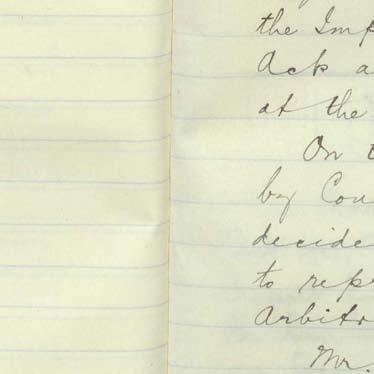 the Imp
Ack a
at the
On t
by Cou
decide
to repr
Arbitr
Mr.